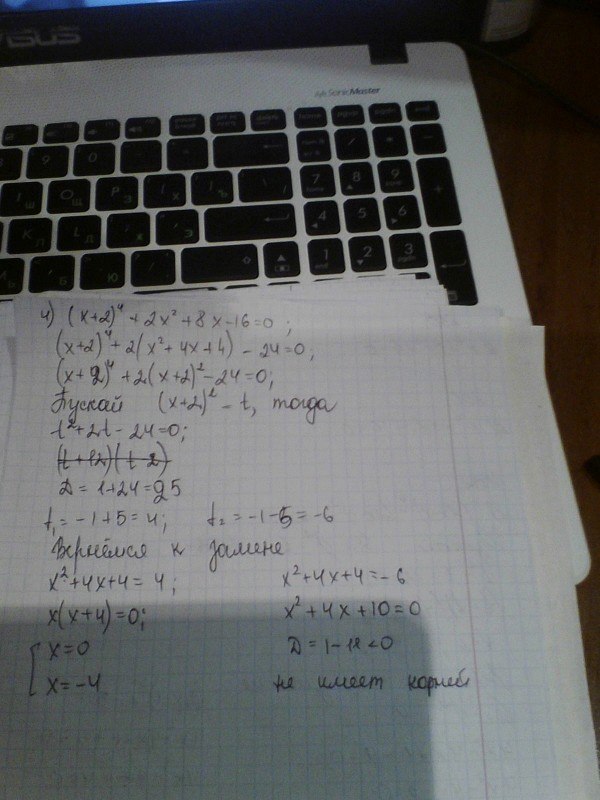 SonicMaster
4) (x+2)⁴ + 2x² + 8x - 16 = 0;
(x+2)⁴ + 2(x² + 4x + 4) - 24 = 0;
(x+2)⁴ + 2(x+2)² - 24 = 0;
Пускай (x+2)² - t, тогда
t² + 2t - 24 = 0;
(t+12)(t-2)
D = 1 + 24 = 25
t₁ = -1 + 5 = 4; t₂ = -1 - 5 = -6
Вернёмся к замене
x² + 4x + 4 = 4; x² + 4x + 4 = -6
x(x+4) = 0; x² + 4x + 10 = 0
x = 0 D = 1 - 12 < 0
x = -4 не имеет корней